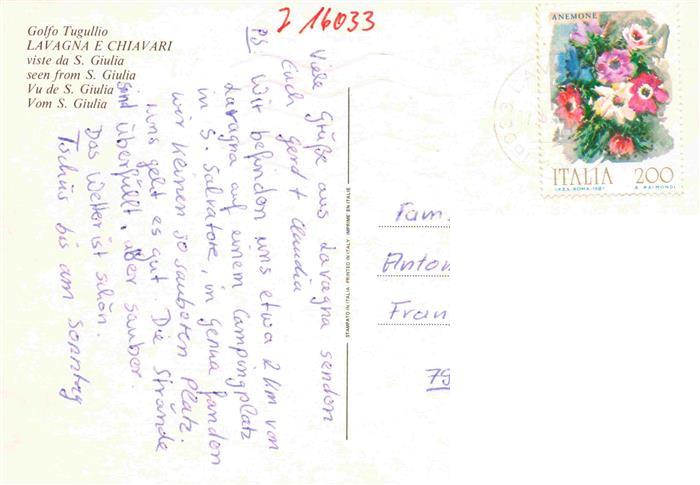 J 16033
Golfo Tugullio
LAVAGNA E CHIAVARI
viste da S. Giulia
seen from S. Giulia
Vu de S. Giulia
Vom S. Giulia
Viele Grüße aus Lavagna senden
Euch Gerd + Claudia
PS: Wir befinden uns etwa 2 km von
Lavagna auf einem Campingplatz
in S. Salvatore, in Genua fanden
wir keinen so sauberen Platz.
Uns geht es gut. Die Strände
sind überfüllt, aber sauber.
Das Wetter ist schön.
Tschüs bis am Sonntag
STAMPATO IN ITALIA PRINTED IN ITALY IMPRIME EN ITALIE
ANEMONE
ITALIA 200
I.P.Z.S. ROMA 1981 A. RAIMONDI
Fam.
Anton
Fran
79